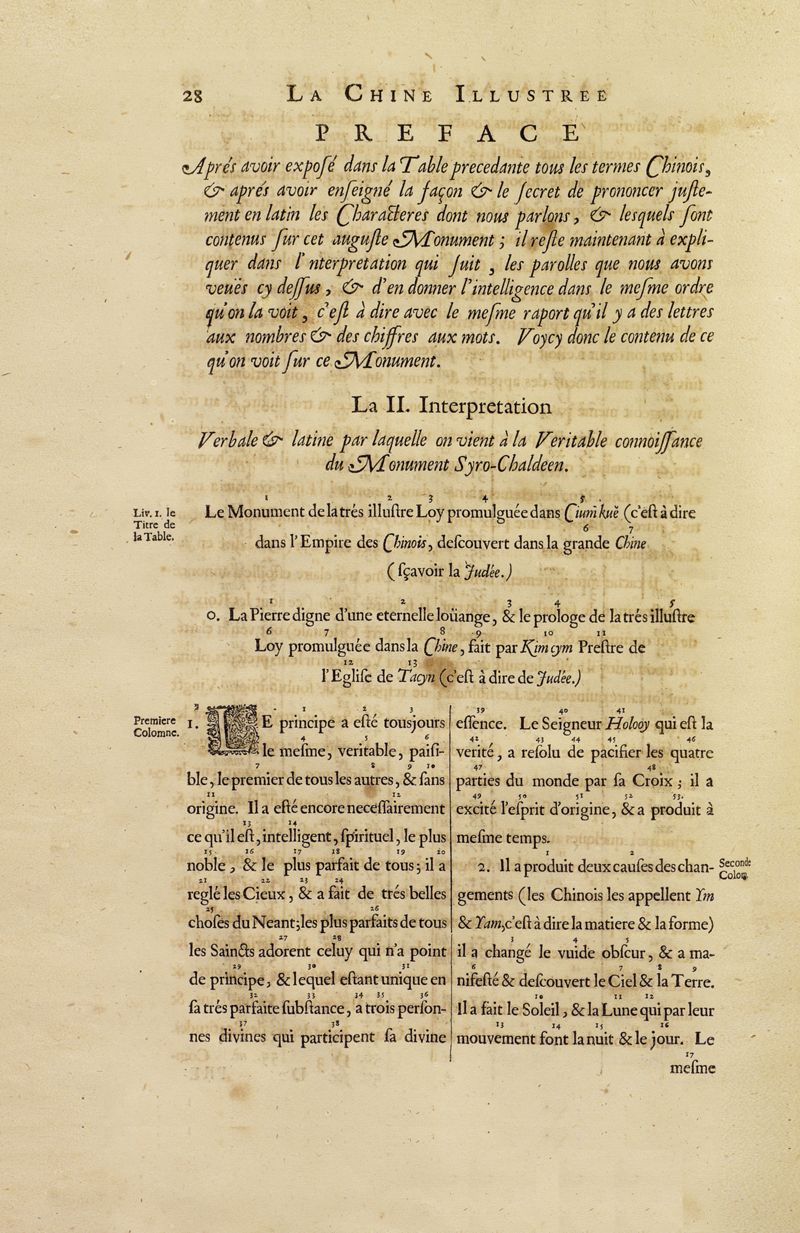 28 LA CHINE ILLUSTREE
PREFACE
Aprés avoir exposé dans la Table precedante tous les termes Chinois,
& aprés avoir enseigné la façon & le secret de prononcer juste-
ment en latin les Characteres dont nous parlons, & lesquels sont
contenus sur cet auguste Monument; il reste maintenant à expli-
quer dans l' nterpretation qui suit, les parolles que nous avons
veuës cy dessus, & d'en donner l'intelligence dans le mesme ordre
qu'on la voit, c'est à dire avec le mesme raport qu'il y a des lettres
aux nombres & des chiffres aux mots. Voycy donc le contenu de ce
qu'on voit sur ce Monument.
La II. Interpretation
Verbale & latine par laquelle on vient à la Veritable connoissance
du Monument Syro-Chaldeen.
1 2 3 4 5
Liv. 1. le
Titre de
la Table.
Le Monument de la trés illustre Loy promulguée dans Ciumkuë (c'est à dire
6 7
dans l'Empire des Chinois, descouvert dans la grande Chine
(sçavoir la Judée.)
1 2 3 4 5
0. La Pierre digne d'une eternelle loüange, & le prologe de la trés illustre
6 7 8 9 10 11
Loy promulguée dans la Chine, fait par Kim cym Prestre de
12 13
l'Eglise de Tacyn (c'est à dire de Judée.)
Premiere
Colomne.
1 2 3
1. LE principe a esté tousjours
4 5 6
le mesme, veritable, paisi-
7 8 9 10
ble, le premier de tous les autres, & sans
11 12
origine. Il a esté encore necessairement
13 14
ce qu'il est, intelligent, spirituel, le plus
15 16 17 18 19 20
noble, & le plus parfait de tous; il a
21 22 23 24
reglé les Cieux, & a fait de trés belles
25 26
choses du Neant; les plus parfaits de tous
27 28
les Saincts adorent celuy qui n'a point
29 30 31
de principe, & lequel estant unique en
32 33 34 35 36
sa trés parfaite substance, a trois person-
37 38
nes divines qui participent sa divine
39 40 41
essence. Le Seigneur Holooy qui est la
42 43 44 45 46
verité, a resolu de pacifier les quatre
47 48
parties du monde par sa Croix; il a
49 50 51 52 53.
excité l'esprit d'origine, & a produit à
mesme temps.
1 2
2. Il a produit deux causes des chan-
Seconde
Colom.
gements (les Chinois les appellent Ym
& Yam, c'est à dire la matiere & la forme)
3 4 5
il a changé le vuide obscur, & a ma-
6 7 8 9
nifesté & descouvert le Ciel & la Terre.
10 11 12
Il a fait le Soleil, & la Lune qui par leur
13 14 15 16
mouvement font la nuit & le jour. Le
17
mesme